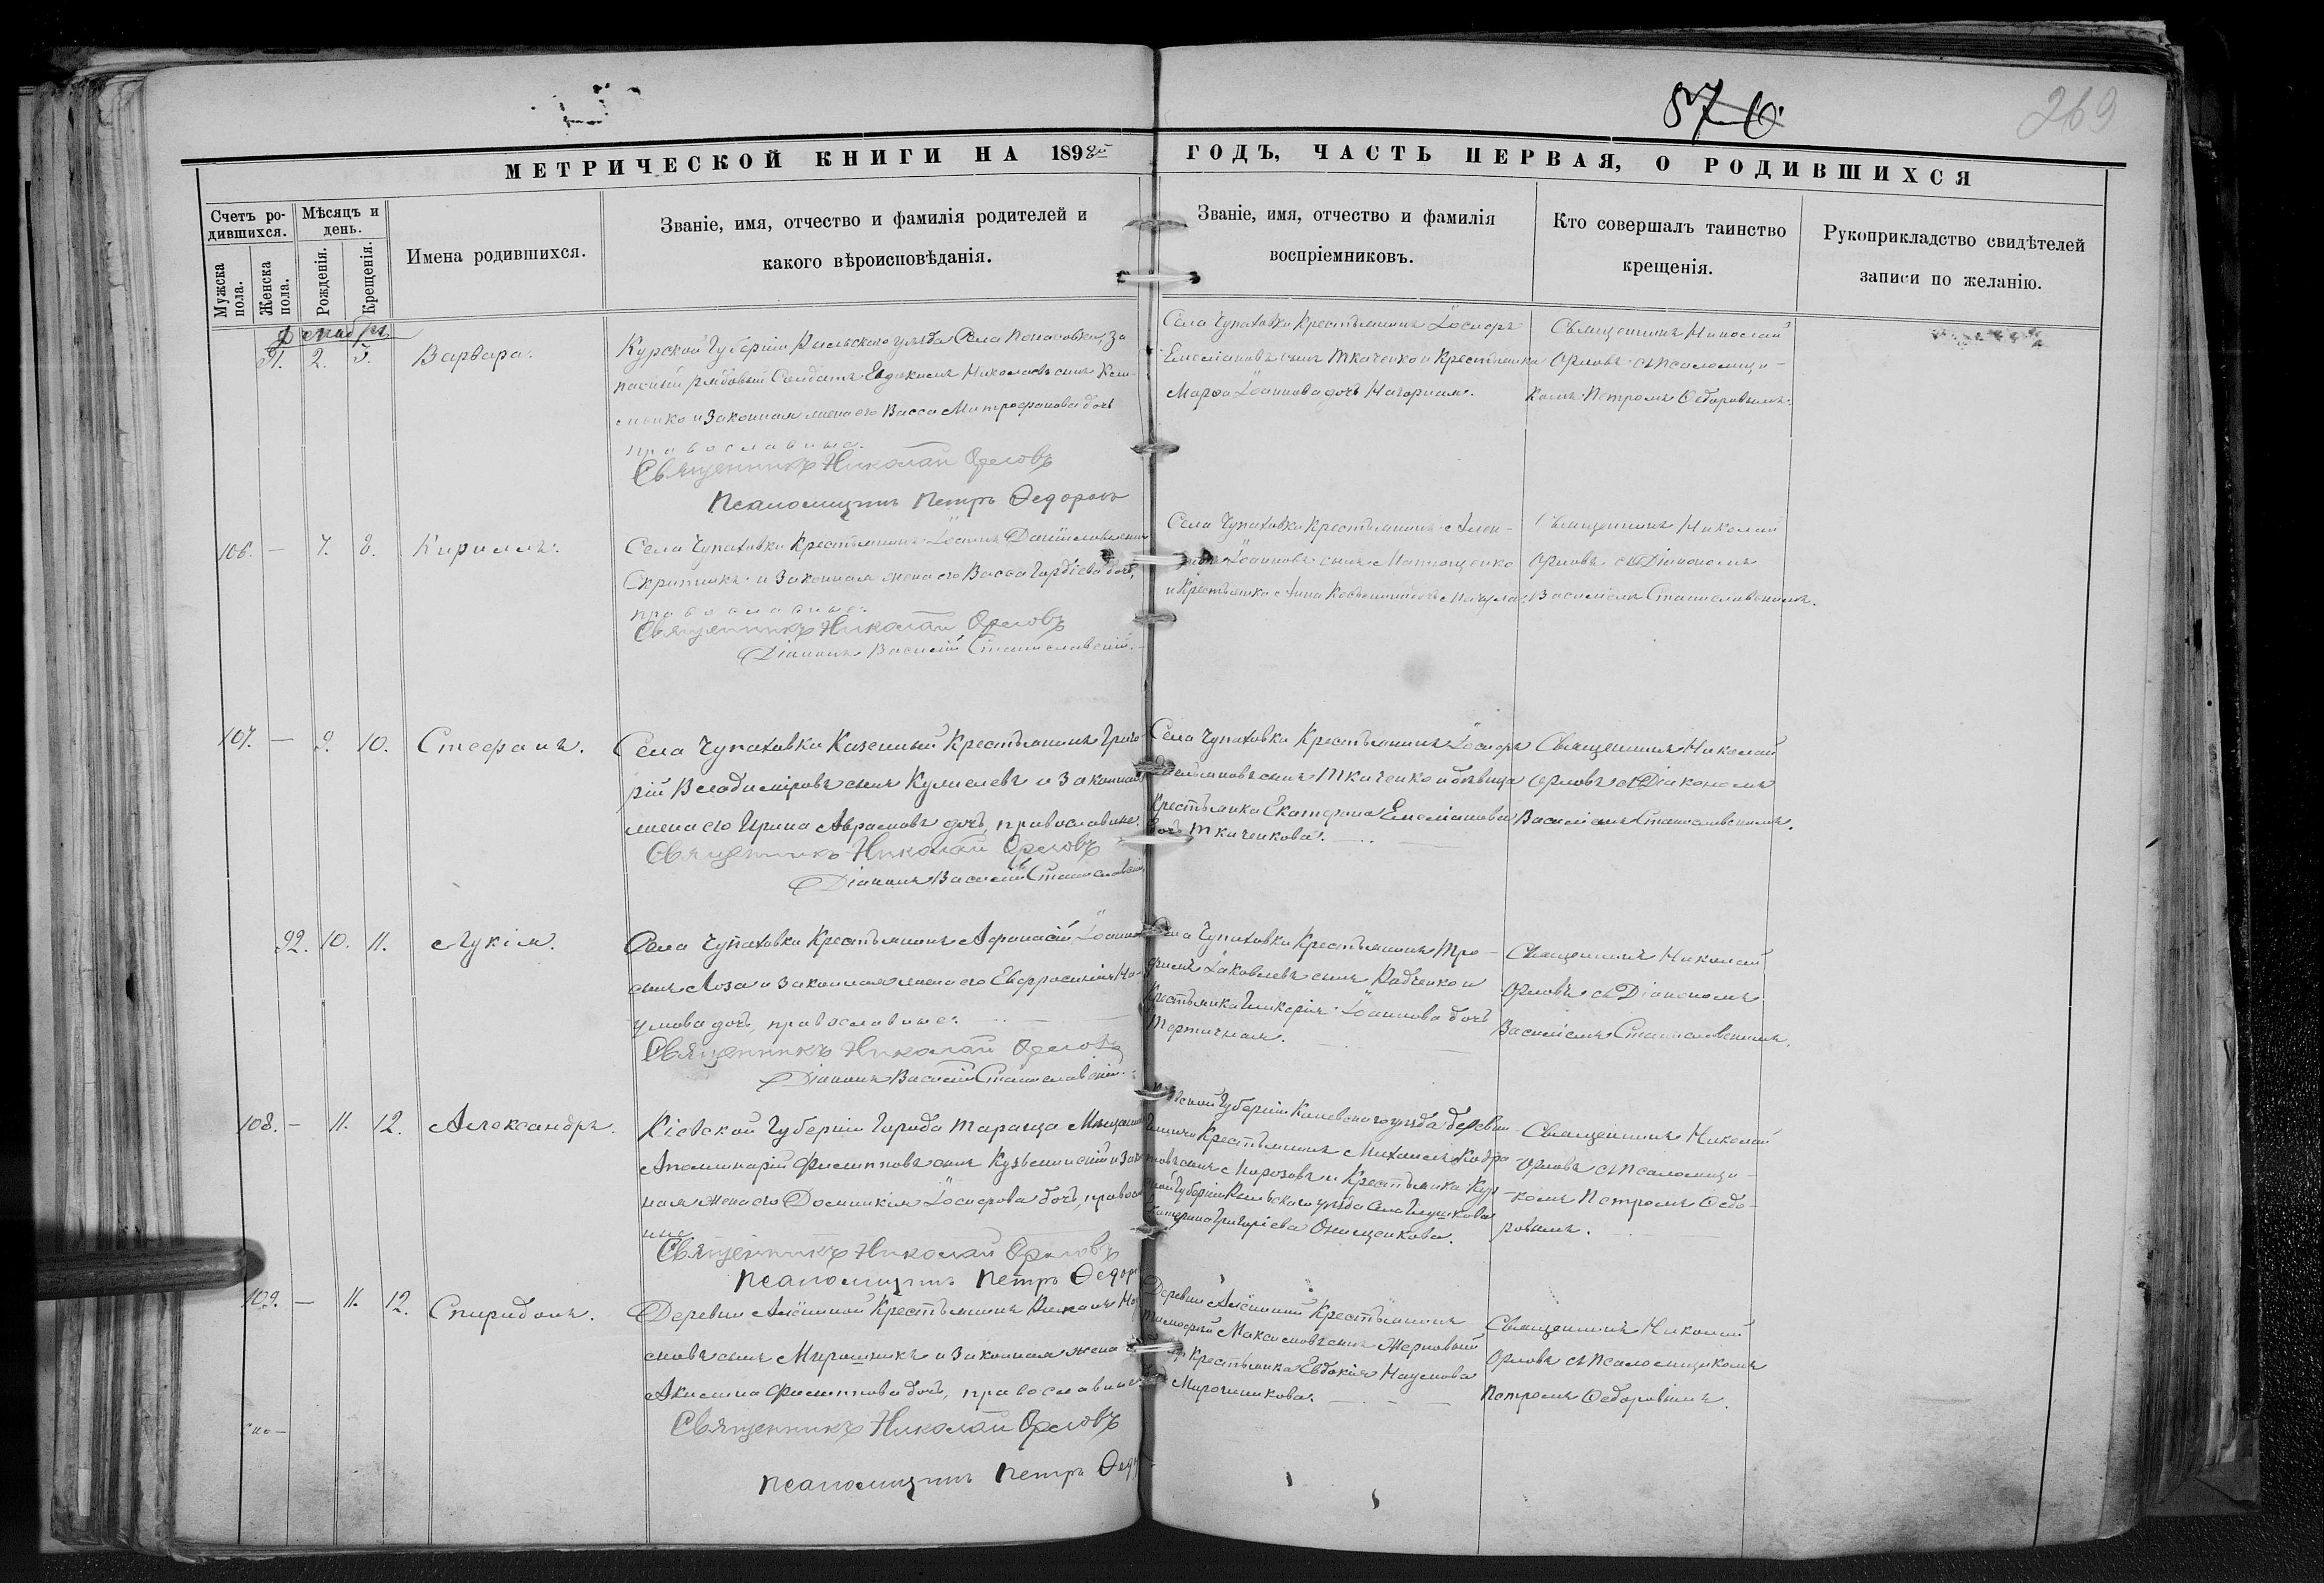 876
269
МЕТРИЧЕСКОЙ КНИГИ НА 1898й ГОДЪ, ЧАСТЬ ПЕРВАЯ, О РОДИВШИХСЯ
Счетъ ро-
дившихся.
Мужска
пола.
Женска
пола.
Мѣсяцъ и
день.
Рожденія.
Крещенія.
Имена родившихся.
Званіе, имя, отчество и фамилія родителей и
какого вѣроисповѣданія.
Званіе, имя, отчество и фамилія
воспріемниковъ.
Кто совершалъ таинство
крещенія.
Рукоприкладство свидѣтелей
записи по желанію.
Декабрь
91. 2. 5. Варвара.
Курской Губерніи Рыльскаго уѣзда Села За
пасный рядовый Солдатъ Евдокимъ Николаевъ сынъ
и законная жена его Васса Митрофанова дочь
православные.
Священникъ Николай Орловъ
Псаломщикъ Петръ Федоровъ
Села Чупаховки Крестьянинъ Іосифъ
Емеліановъ сынъ Ткаченко и Крестьянка
Марѳа Іоаннова дочь Нагорная.
Священникъ Николай
Орловъ съ псаломщи-
комъ Петромъ Федоровымъ.
106. — 7. 8. Кириллъ.
Села Чупаховки Крестьянинъ Іоаннъ Даніиловъ сынъ
Скрипникъ и законная жена его Васса Гордіева дочь,
православные.
Священникъ Николай Орловъ
Діаконъ Василій Станиславскій.
Села Чупаховки Крестьянинъ
Іоанновъ сынъ Матющенко
и Крестьянка Анна
Священникъ Николай
Орловъ съ Діакономъ
Василіемъ Станиславскимъ.
107. — 9. 10. Стефанъ.
Села Чупаховки Казенный Крестьянинъ Григо-
рій Владиміровъ сынъ и законная
жена его Ирина Абрамова дочь, православные.
Священникъ Николай Орловъ
Діаконъ Василій Станиславскій
Села Чупаховки Крестьянинъ Іосифъ
Емельяновъ сынъ Ткаченко и дѣвица
Крестьянка Екатерина Емеліанова
дочь Ткаченкова.
Священникъ Николай
Орловъ съ Діакономъ
Василіемъ Станиславскимъ.
92. 10. 11. Лукія.
Села Чупаховки Крестьянинъ Афанасій Іоаннов
сынъ Лоза и законная жена его Евфросинія На-
умова дочь, православные.
Священникъ Николай Орловъ
Діаконъ Василій Станиславскій.
Села Чупаховки Крестьянинъ Тро-
фимъ Іаковлевъ сынъ Радченко и
Крестьянка Гликерія Іоаннова дочь
Тертичная.
Священникъ Николай
Орловъ съ Діакономъ
Василіемъ Станиславскимъ.
108. — 11. 12. Александръ.
Кіевской Губерніи Города Тараща Мѣщанин
Аполлинарій Филипповъ сынъ Кузьминскій и зак
ная жена его Домникія Іосифова дочь, правосл
ные
Священникъ Николай Орловъ
Псаломщикъ Петръ Федор
Губерніи Каневскаго уѣзда деревни
Крестьянинъ Михаилъ Кодра
товъ сынъ Морозовъ и Крестьянка Кур
ской Губерніи Рыльскаго уѣзда Села Глушкова
Катерина Григоріева Онищенкова.
Священникъ Николай
Орловъ съ Псаломщи-
комъ Петромъ Федо-
ровымъ.
109. — 11. 12. Спиридонъ.
Деревни Алёшиной Крестьянинъ Романъ На
умовъ сынъ Мирошникъ и законная жена
Акилина Филиппова дочь, православные
Священникъ Николай Орловъ
Псаломщикъ Петръ Федо
Деревни Алёшиной Крестьянинъ
Тимофей Максимовъ сынъ Жерновый
и Крестьянка Евдокія Наумова
дочь Мирошникова.
Священникъ Николай
Орловъ съ Псаломщикомъ
Петромъ Федоровымъ.